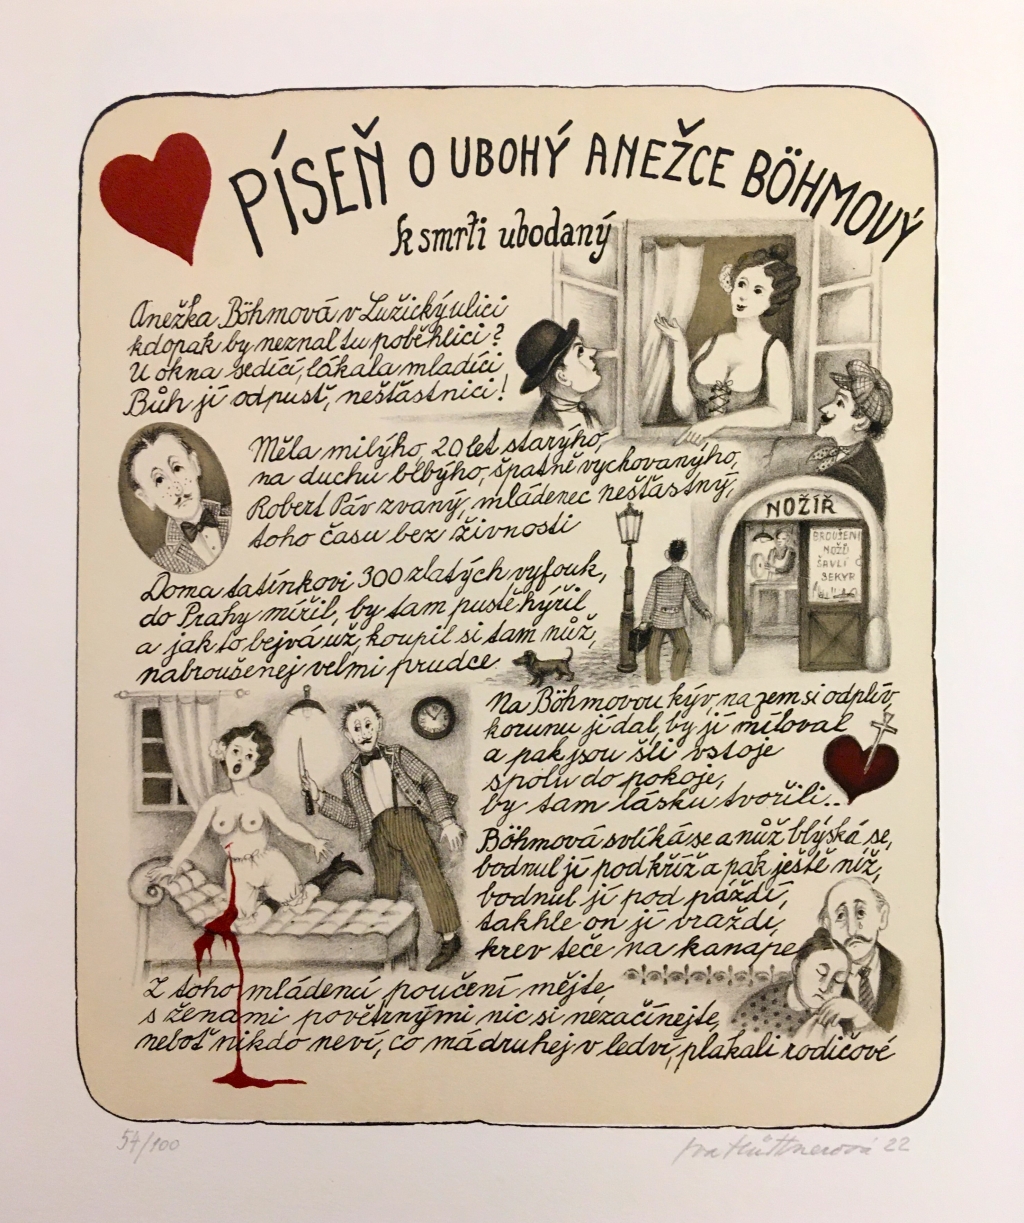 PÍSEŇ O UBOHÝ ANEŽCE BÖHMOVÝ
k smrti ubodaný
Anežka Böhmová v Lužický ulici
kdopak by neznal tu poběhlici?
U okna sedící, lákala mladíci,
Bůh jí odpusť, nešťastnici!
Měla milýho, 20 let starýho,
na duchu blbýho, špatně vychovanýho,
Robert Páv zvaný, mládenec nešťastný,
toho času bez živnosti
NOŽÍŘ
BROUŠENÍ
NOŽŮ
ŠAVLÍ
SEKYR
Doma tatínkovi 300 zlatých vyfouk,
do Prahy mířil, by tam pustě hýřil
a jak to bejvá už, koupil si tam nůž,
nabroušenej velmi prudce
Na Böhmovou kýv, na zem si odpliv,
korunu jí dal, by jí miloval
a pak jsou šli vstoje
spolu do pokoje,
by tam lásku tvořili...
Böhmová svlíká se a nůž blýská se,
bodnul jí pod kříž a pak ještě níž,
bodnul jí pod páždí,
takhle on jí vraždí,
krev teče na kanape
Z toho mládenci poučení mějte,
s ženami povětrnými nic si nezačínejte,
neboť nikdo neví, co má druhej v ledví, plakali rodičové
54/100
Iva Hüttnerová 22